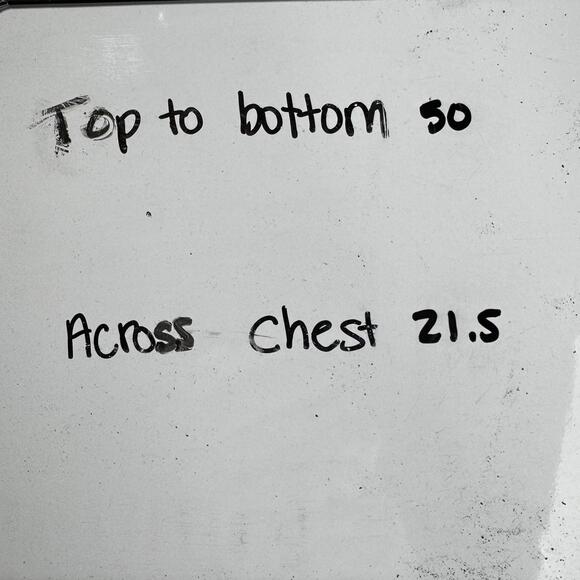 Top to bottom 50
Across Chest 21.5